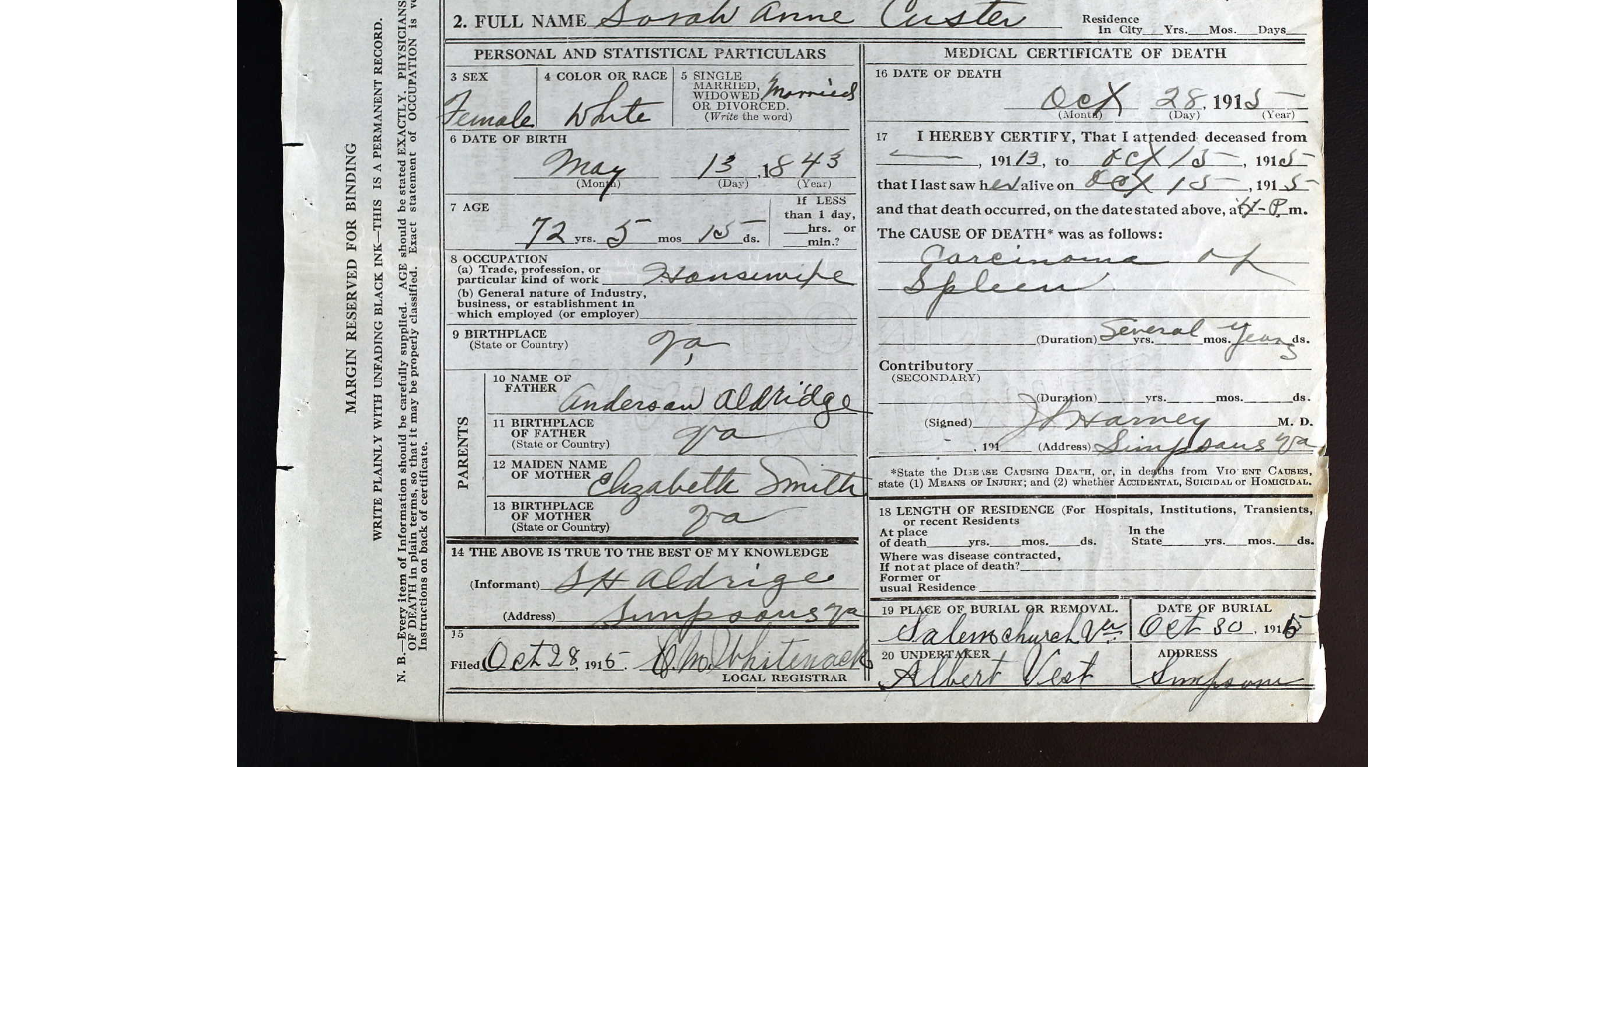 2. FULL NAME Sarah Anne Custer
Residence
In City Yrs. Mos. Days
PERSONAL AND STATISTICAL PARTICULARS
3 SEX
Female
4 COLOR OR RACE
White
5 SINGLE
MARRIED,
WIDOWED, Married
OR DIVORCED.
(Write the word)
6 DATE OF BIRTH
May 13, 1843
(Month) (Day) (Year)
7 AGE
72 yrs. 5 mos 15 ds.
If LESS
than 1 day,
hrs. or
min.?
8 OCCUPATION
(a) Trade, profession, or
particular kind of work Housewife
(b) General nature of Industry,
business, or establishment in
which employed (or employer)
9 BIRTHPLACE
(State or Country) Va,
PARENTS
10 NAME OF
FATHER Anderson Aldridge
11 BIRTHPLACE
OF FATHER Va
(State or Country)
12 MAIDEN NAME
OF MOTHER Elizabeth Smith
13 BIRTHPLACE
OF MOTHER Va
(State or Country)
14 THE ABOVE IS TRUE TO THE BEST OF MY KNOWLEDGE
(Informant) S H Aldrige
(Address) Simpsons Va
15
Filed Oct 28, 1915. Whitenack
LOCAL REGISTRAR
MEDICAL CERTIFICATE OF DEATH
16 DATE OF DEATH
Oct 28, 1915
(Month) (Day) (Year)
17 I HEREBY CERTIFY, That I attended deceased from
, 1913, to Oct 15, 1915
that I last saw her alive on Oct 15, 1915
and that death occurred, on the date stated above, at 4-P. m.
The CAUSE OF DEATH* was as follows:
Carcinoma of
Spleen
(Duration) Several yrs. mos. Years ds.
Contributory
(SECONDARY)
(Duration) yrs. mos. ds.
(Signed) Harney M. D.
, 191 (Address) Simpsons Va
*State the DISEASE CAUSING DEATH, or, in deaths from VIOLENT CAUSES,
state (1) MEANS OF INJURY; and (2) whether ACCIDENTAL, SUICIDAL or HOMICIDAL.
18 LENGTH OF RESIDENCE (For Hospitals, Institutions, Transients,
or recent Residents
At place
of death yrs. mos. ds.
In the
State yrs. mos. ds.
Where was disease contracted,
If not at place of death?
Former or
usual Residence
19 PLACE OF BURIAL OR REMOVAL.
Salem church Va
DATE OF BURIAL
Oct 30, 1915
20 UNDERTAKER
Albert Vest
ADDRESS
Simpsons
MARGIN RESERVED FOR BINDING
WRITE PLAINLY WITH UNFADING BLACK INK—THIS IS A PERMANENT RECORD.
N. B.—Every item of Information should be carefully supplied. AGE should be stated EXACTLY. PHYSICIANS
OF DEATH in plain terms, so that it may be properly classified. Exact statement of OCCUPATION is
Instructions on back of certificate.